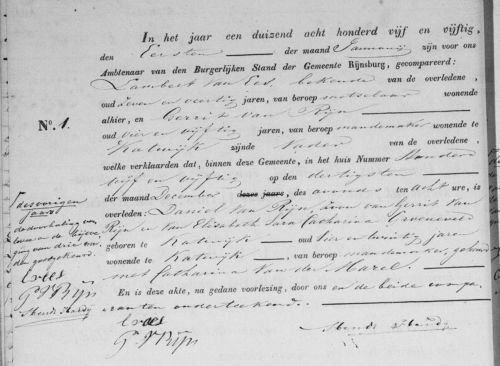 In het jaar een duizend acht honderd vijf en vijftig,
den Eersten der maand Januarij zijn voor ons
Ambtenaar van den Burgerlijken Stand der Gemeente Rijnsburg, gecompareerd:
Lambert van Ees, bekende van de overledene,
oud zeven en veertig jaren, van beroep metselaar wonende
No. 1.
alhier, en Gerrit van Rijn
oud vier en vijftig jaren, van beroep mandemaker wonende te
Katwijk zijnde Vader van de overledene,
welke verklaarden dat, binnen deze Gemeente, in het huis Nummer Honderd
vijf en vijftig op den dertigsten
der maand December dezes jaars, des avonds ten acht ure, is
overleden: Daniel van Rijn, zoon van Gerrit van
Rijn en van Elisabeth Sara Catharina
geboren te Katwijk oud vier en twintig jaren
wonende te Katwijk, van beroep mandemaker, gehuwd
met Catharina van der Marel.
En is deze akte, na gedane voorlezing, door ons en de beide compa-
ranten onderteekend.
des vorigen
jaars
de doorhaling van
twee en de bijvoe-
ging van drie woor-
den goedgekeurd.
G. v Rijn
G. v Rijn